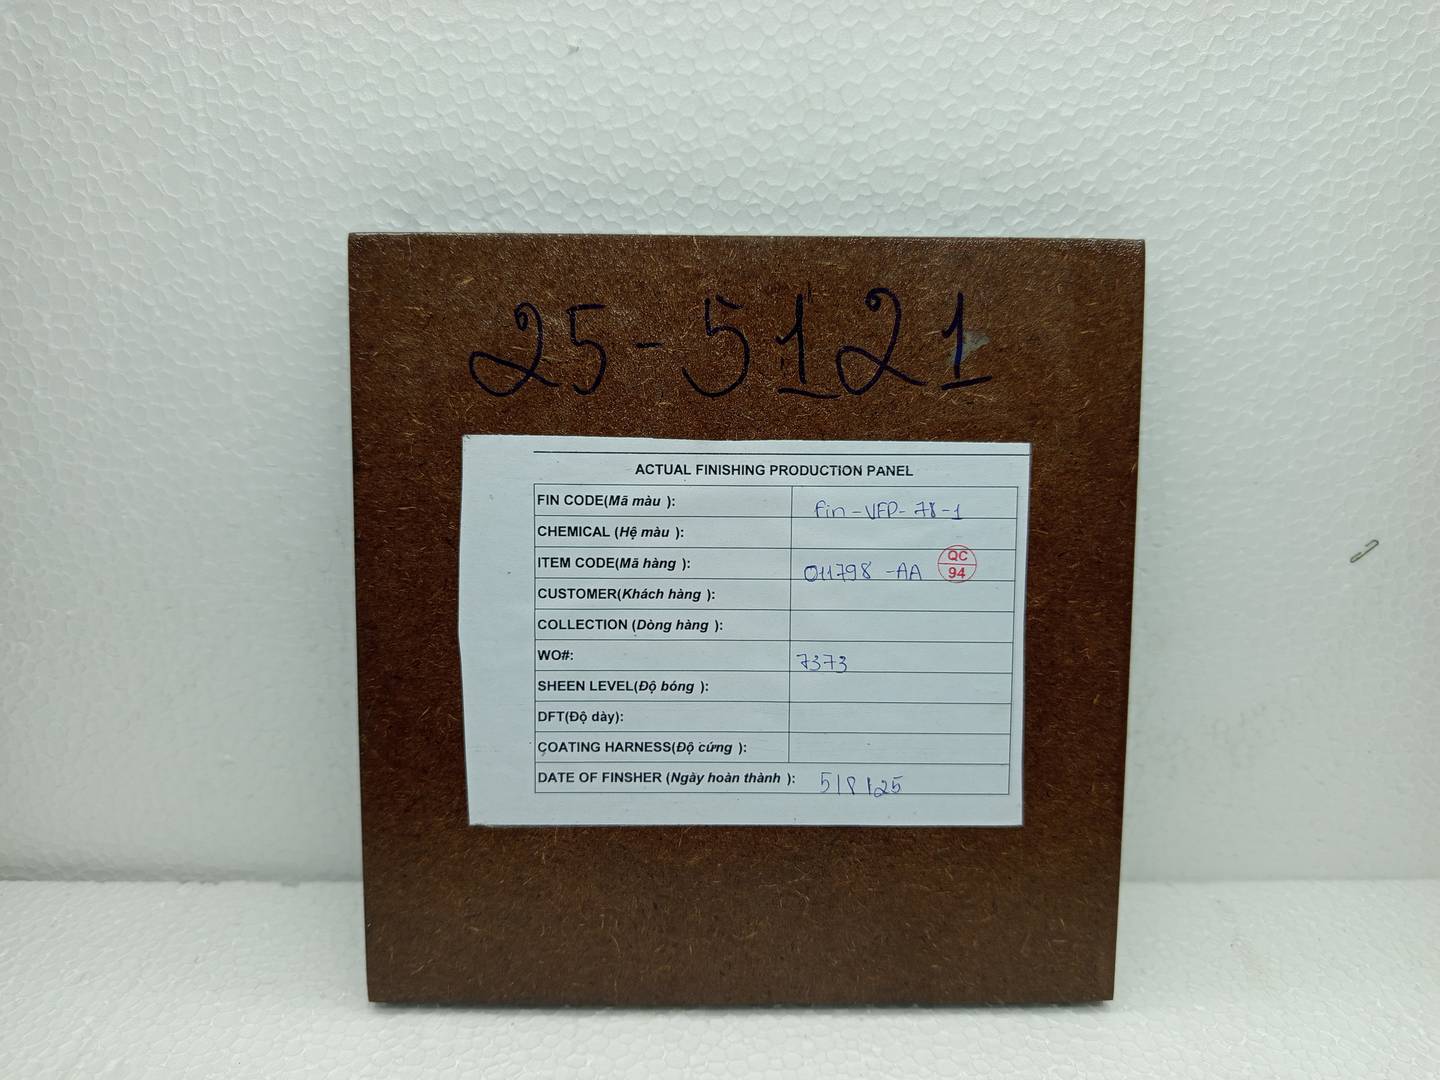 25-5121
ACTUAL FINISHING PRODUCTION PANEL
FIN CODE(Mã màu ): Fin-VFP-78-1
CHEMICAL (Hệ màu ):
ITEM CODE(Mã hàng ): 011798-AA QC 94
CUSTOMER(Khách hàng ):
COLLECTION (Dòng hàng ):
WO#: 7373
SHEEN LEVEL(Độ bóng ):
DFT(Độ dày):
COATING HARNESS(Độ cứng ):
DATE OF FINSHER (Ngày hoàn thành ): 5/8/25